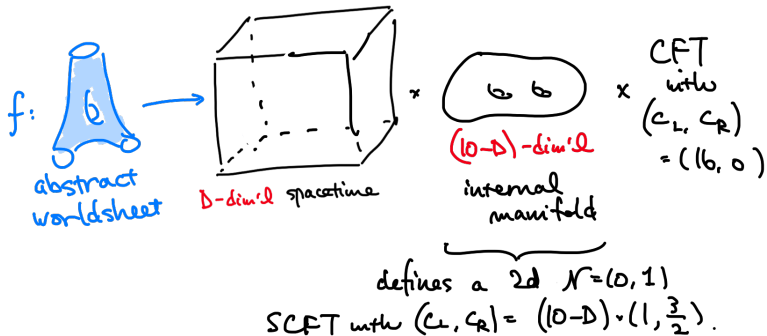 f:
abstract
worldsheet
D-dim'l spacetime
×
(10-D)-dim'l
internal
manifold
×
CFT
with
(C_L, C_R)
= (16, 0)
defines a 2d N=(0,1)
SCFT with (C_L, C_R) = (10-D)·(1, 3/2).